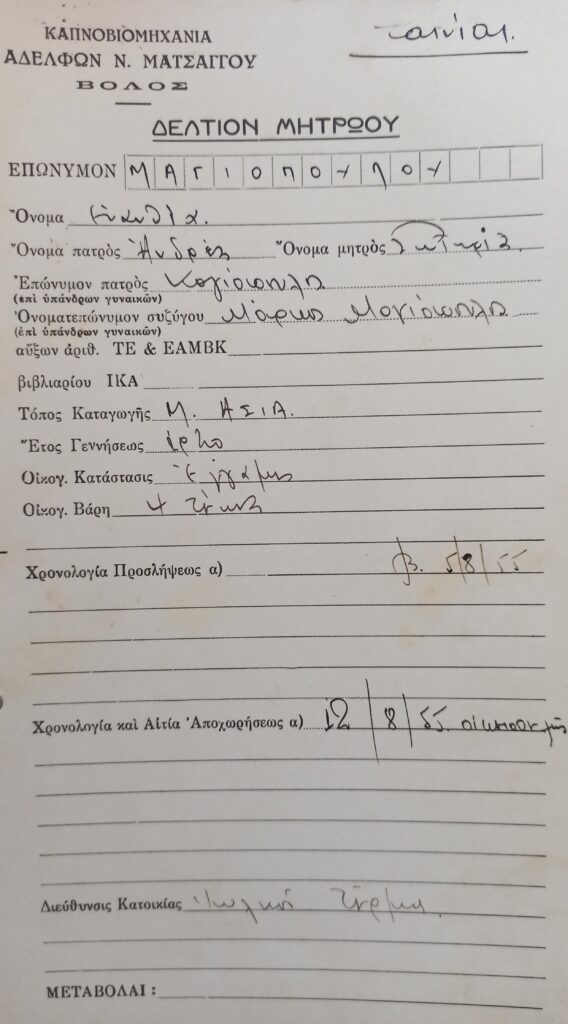 ΚΑΠΝΟΒΙΟΜΗΧΑΝΙΑ
ΑΔΕΛΦΩΝ Ν. ΜΑΤΣΑΓΓΟΥ
ΒΟΛΟΣ
ταινίαι.
ΔΕΛΤΙΟΝ ΜΗΤΡΩΟΥ
ΕΠΩΝΥΜΟΝ ΜΑΓΙΟΠΟΥΛΟΥ
Ὄνομα Εὐανθία.
Ὄνομα πατρὸς Ἀνδρέα Ὄνομα μητρὸς
Ἐπώνυμον πατρὸς
(ἐπὶ ὑπάνδρων γυναικῶν)
Ὀνοματεπώνυμον συζύγου Μάρκο
(ἐπὶ ὑπάνδρων γυναικῶν)
αὔξων ἀριθ. ΤΕ & ΕΑΜΒΚ
βιβλιαρίου ΙΚΑ
Τόπος Καταγωγῆς Μ. ΑΣΙΑ.
Ἔτος Γεννήσεως
Οἰκογ. Κατάστασις Ἔγγαμος
Οἰκογ. Βάρη 4 τέκνα
Χρονολογία Προσλήψεως α) β. 5/8/55
Χρονολογία καὶ Αἰτία Ἀποχωρήσεως α) 12/8/55 οἰκειοθελῶς
Διεύθυνσις Κατοικίας τέρμα
ΜΕΤΑΒΟΛΑΙ :